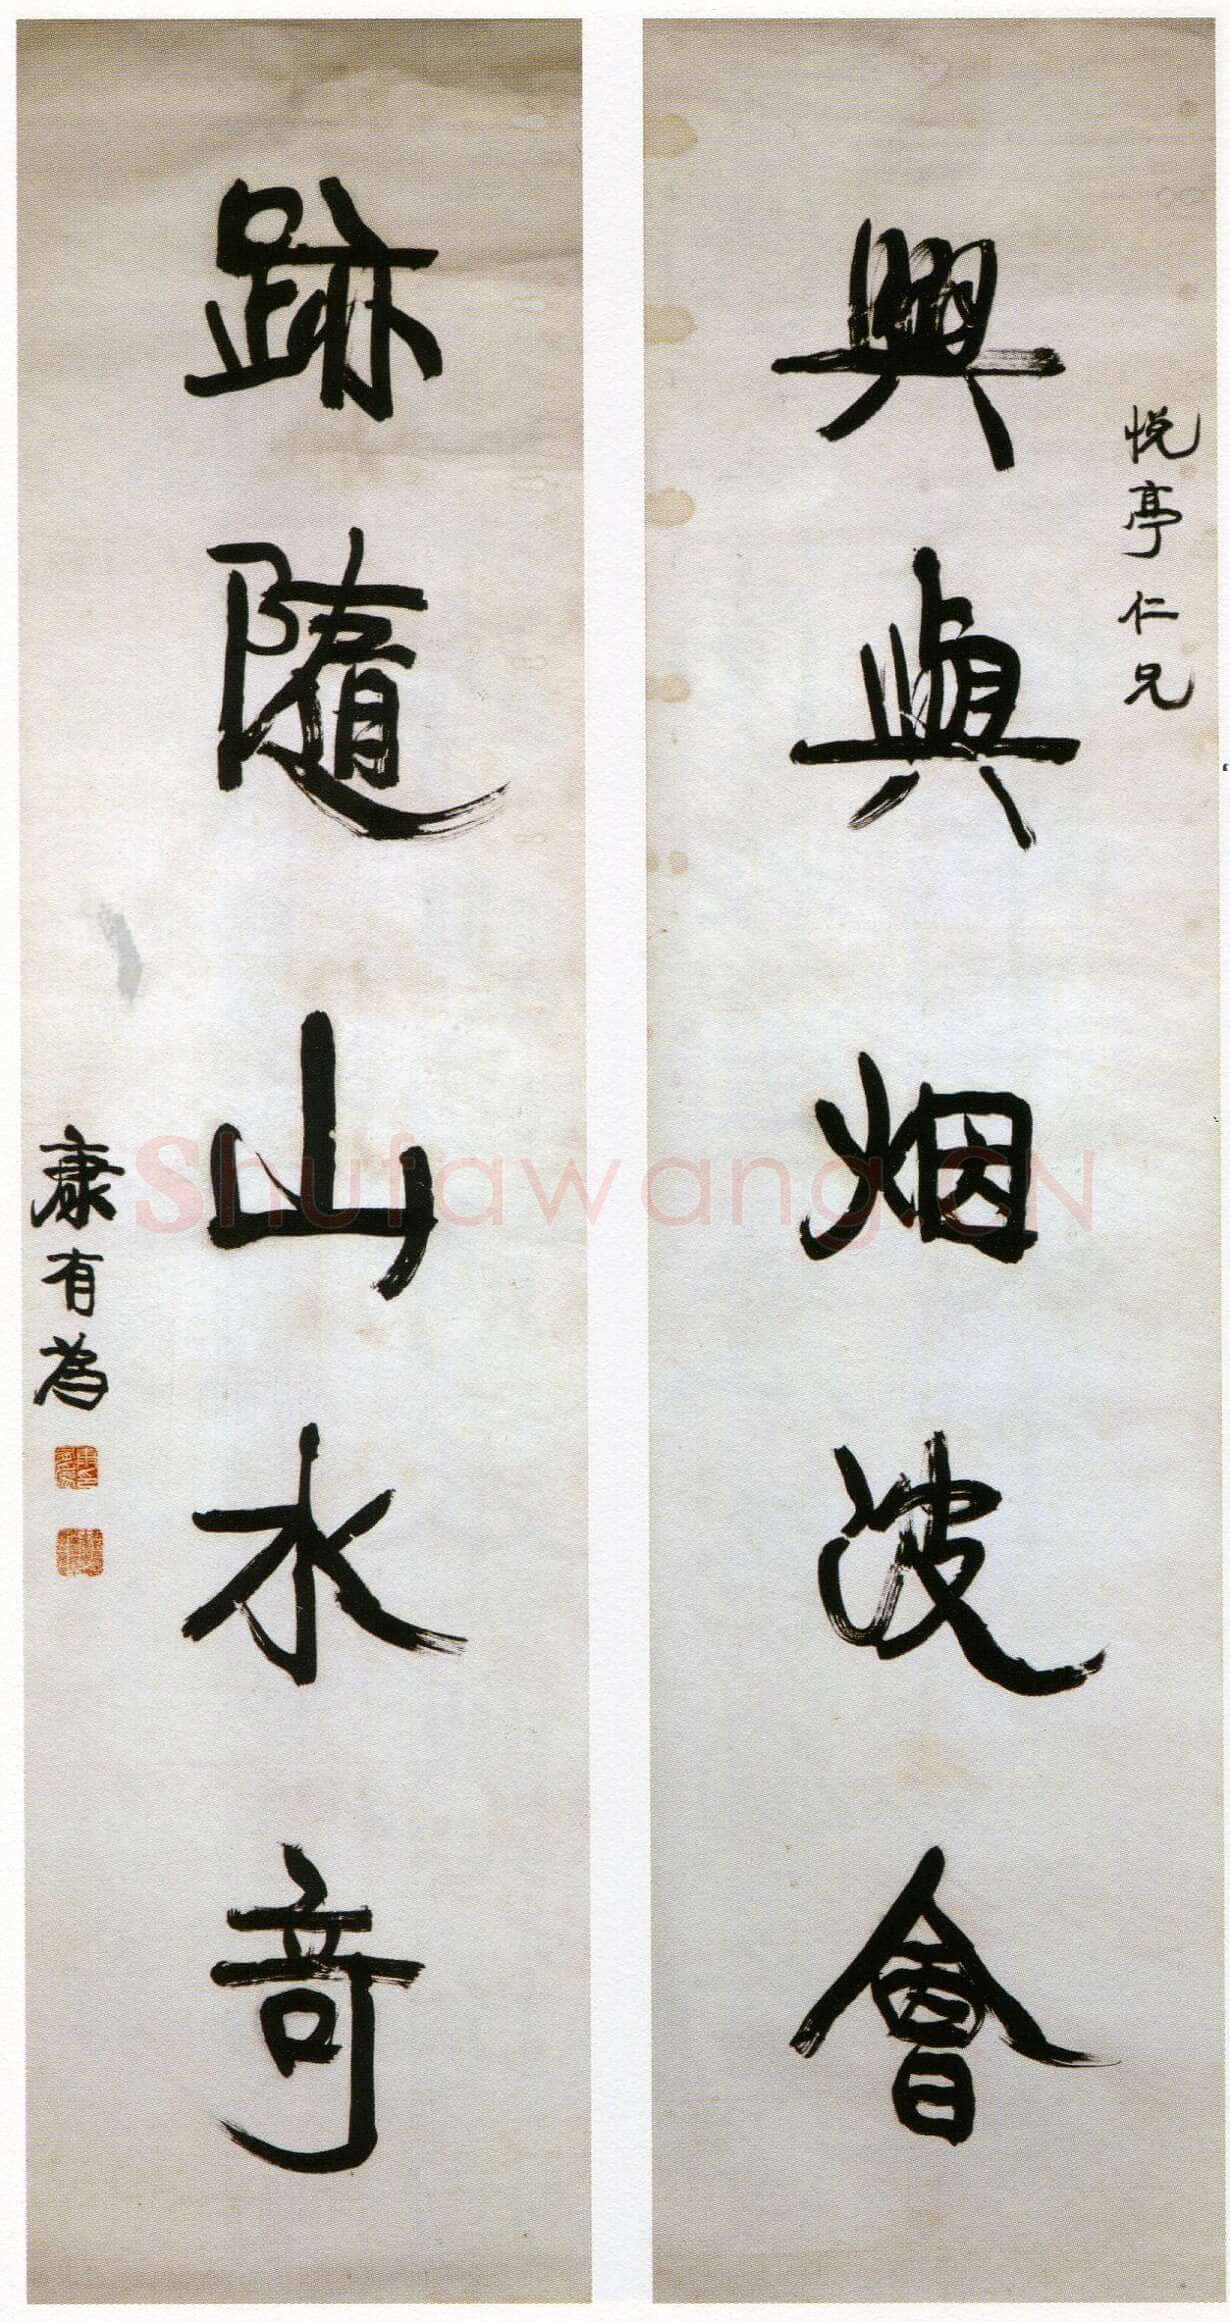 悦亭仁兄
興與烟波會
跡隨山水奇
康有為
Shufawang.CN